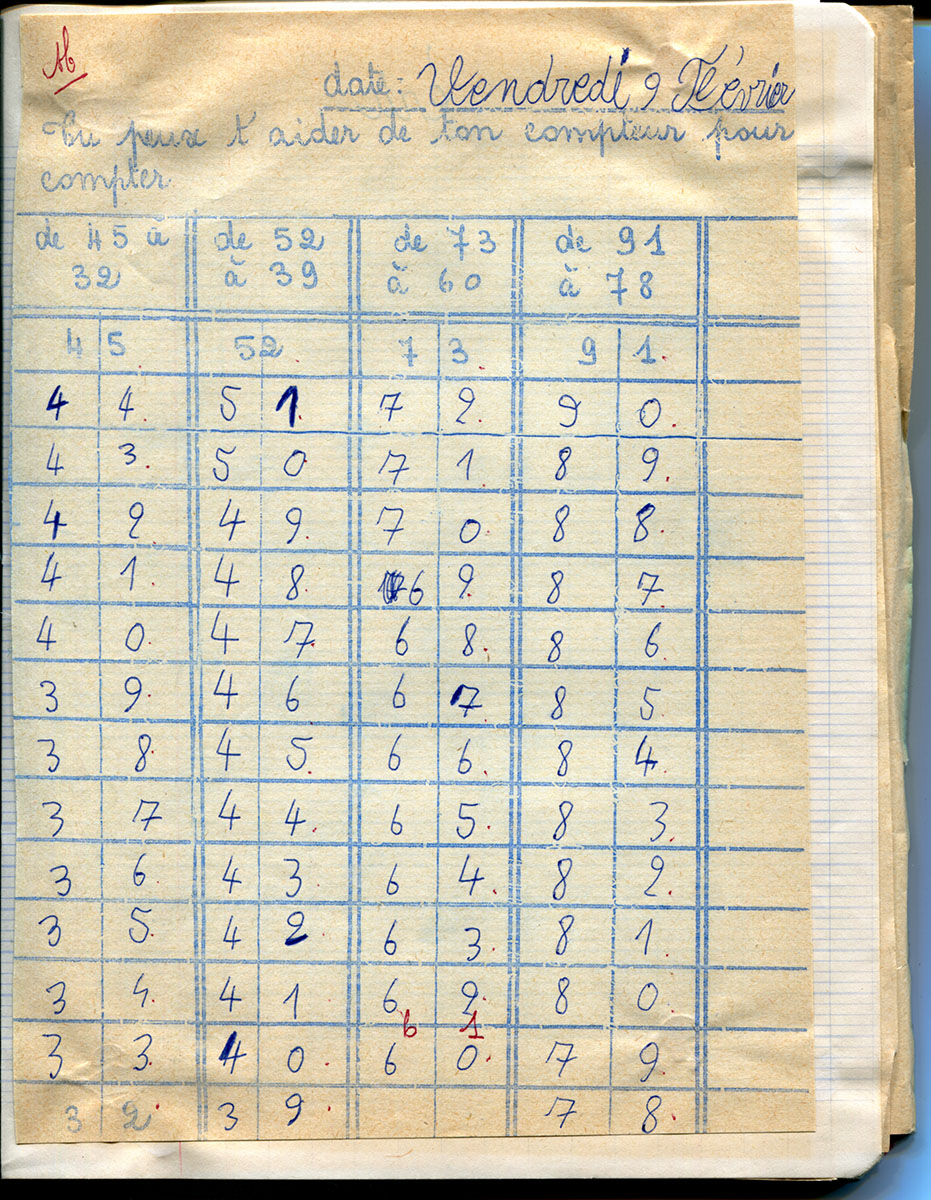 Ab
date: Vendredi 9 Février
Tu peux t'aider de ton compteur pour
compter
de 45 à de 52 de 73 de 91
32 à 39 à 60 à 78
4 5 52 7 3 9 1
4 4 5 1 7 2 9 0
4 3 5 0 7 1 8 9
4 2 4 9 7 0 8 8
4 1 4 8 6 9 8 7
4 0 4 7 6 8 8 6
3 9 4 6 6 7 8 5
3 8 4 5 6 6 8 4
3 7 4 4 6 5 8 3
3 6 4 3 6 4 8 2
3 5 4 2 6 3 8 1
3 4 4 1 6 2 8 0
6 1
3 3 4 0 6 0 7 9
3 2 3 9 7 8